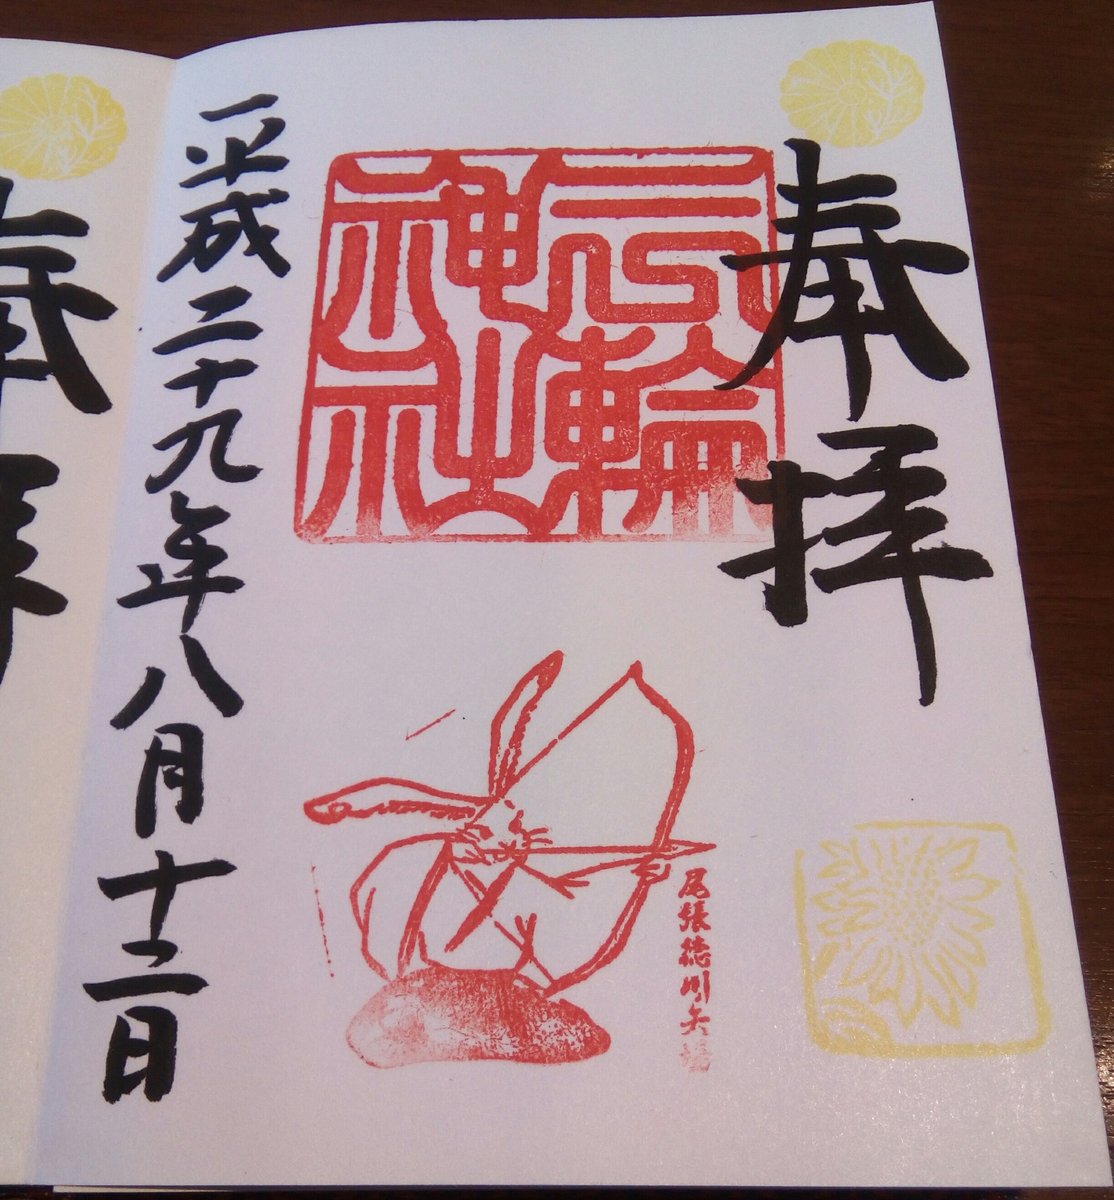 奉拝
三輪神社
尾張徳川矢場
平成二十九年八月十二日
奉拝